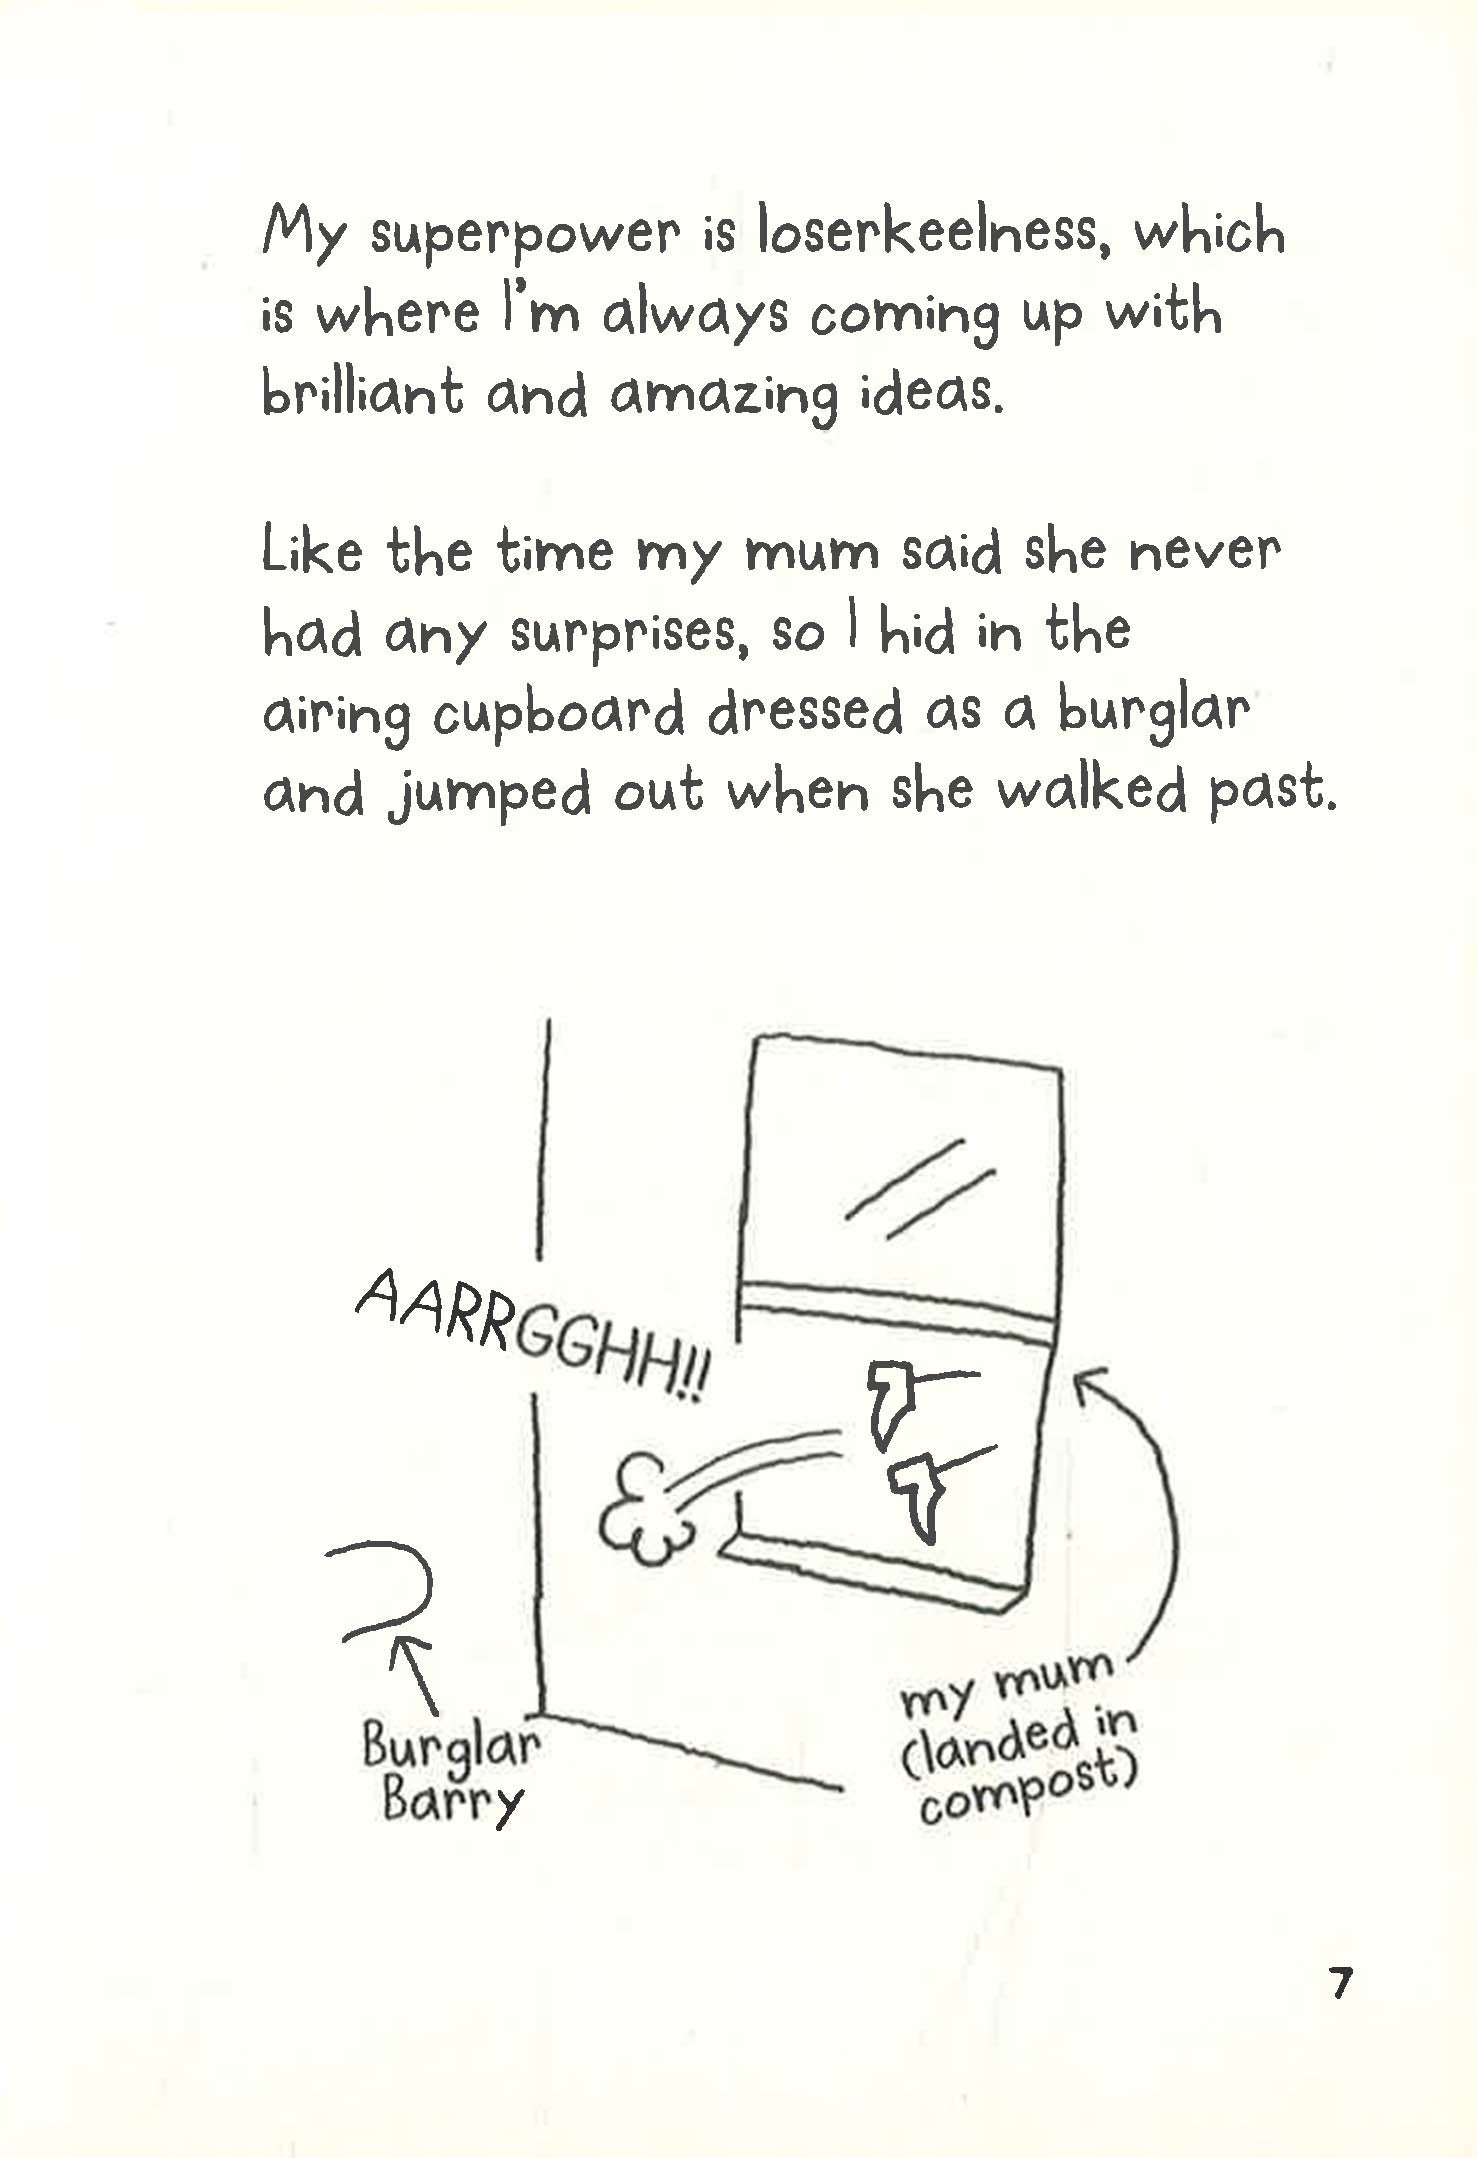 My superpower is loserkeelness, which
is where I'm always coming up with
brilliant and amazing ideas.
Like the time my mum said she never
had any surprises, so I hid in the
airing cupboard dressed as a burglar
and jumped out when she walked past.
AARRGGHH!!
Burglar
Barry
my mum
(landed in
compost)
7